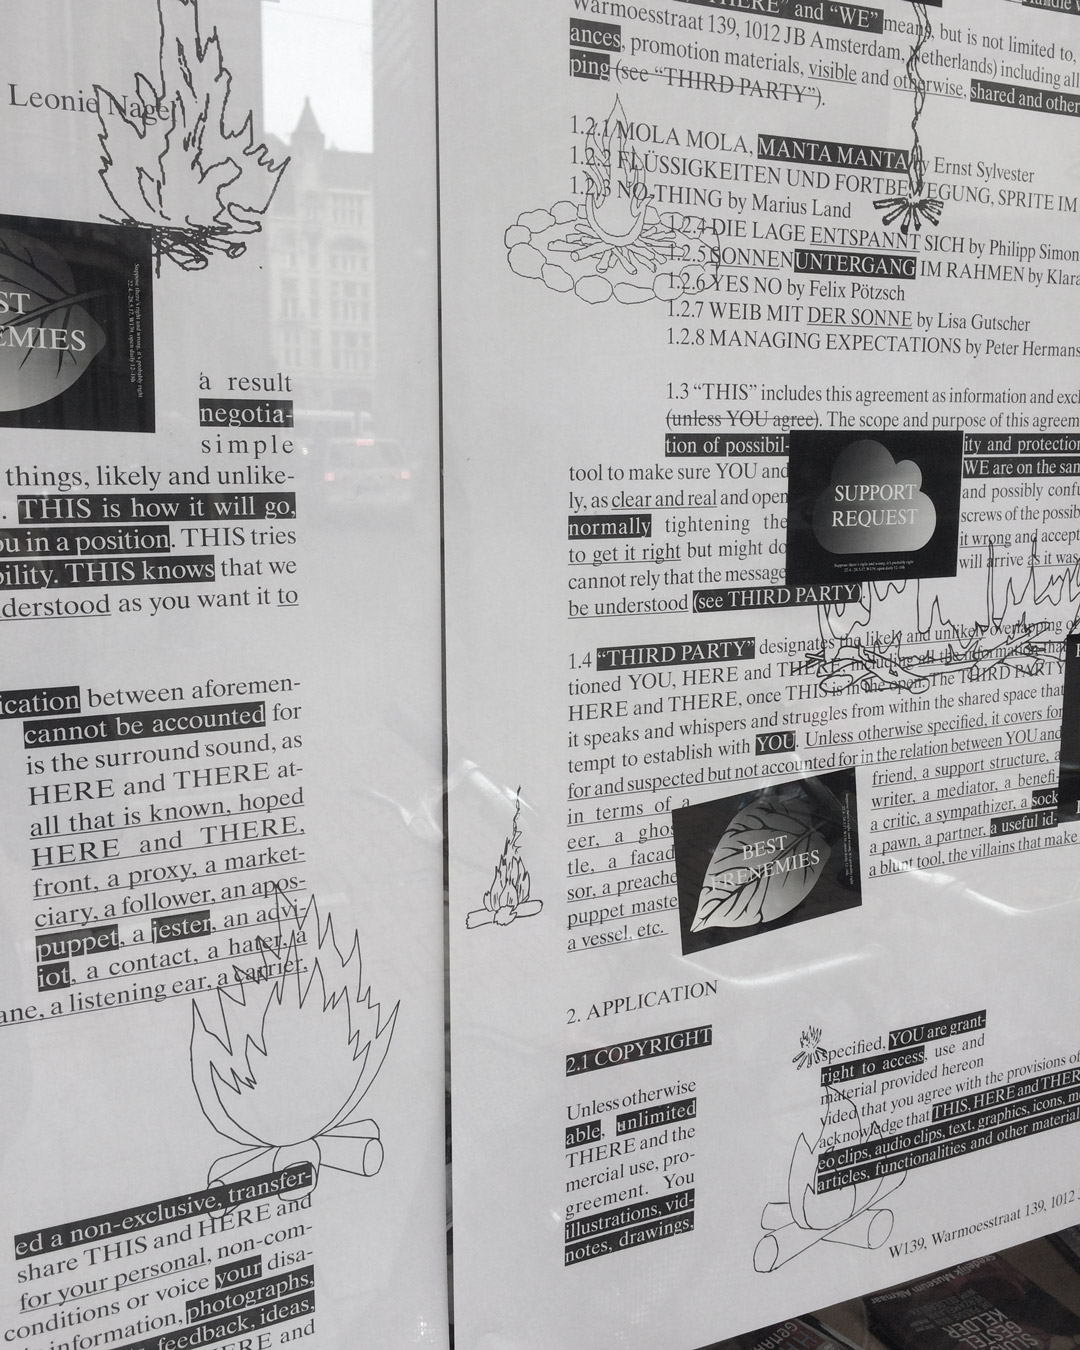 Leonie Nagel
ST
EMIES
a result
negotia-
simple
things, likely and unlike-
. THIS is how it will go,
ou in a position. THIS tries
bility. THIS knows that we
derstood as you want it to
ication between aforemen-
cannot be accounted for
is the surround sound, as
HERE and THERE at-
all that is known, hoped
HERE and THERE,
front, a proxy, a market-
ciary, a follower, an apos-
puppet, a jester, an advi-
iot, a contact, a hater, a
ane, a listening ear, a carrier,
ed a non-exclusive, transfer-
share THIS and HERE and
for your personal, non-com-
conditions or voice your disa-
information, photographs,
feedback, ideas,
ERE and
THERE" and "WE" means, but is not limited to,
Warmoesstraat 139, 1012 JB Amsterdam, Netherlands) including all
ances, promotion materials, visible and otherwise, shared and other
ping (see "THIRD PARTY").
1.2.1 MOLA MOLA, MANTA MANTA by Ernst Sylvester
1.2.2 FLÜSSIGKEITEN UND FORTBEWEGUNG, SPRITE IM
1.2.3 NO THING by Marius Land
1.2.4 DIE LAGE ENTSPANNT SICH by Philipp Simon
1.2.5 SONNENUNTERGANG IM RAHMEN by Klara
1.2.6 YES NO by Felix Pötzsch
1.2.7 WEIB MIT DER SONNE by Lisa Gutscher
1.2.8 MANAGING EXPECTATIONS by Peter Hermans
1.3 "THIS" includes this agreement as information and excl
(unless YOU agree). The scope and purpose of this agreem
tion of possibil-ity and protection
tool to make sure YOU and WE are on the sam
ly, as clear and real and open and possibly confu
normally tightening the screws of the possib
to get it right but might do it wrong and accept
cannot rely that the message will arrive as it was
be understood (see THIRD PARTY).
SUPPORT
REQUEST
Suppose there's right and wrong, it's probably right
1.4 "THIRD PARTY" designates the likely and unlikely overlapping of
tioned YOU, HERE and THERE, including all the information that
HERE and THERE, once THIS is in the open. The THIRD PARTY
it speaks and whispers and struggles from within the shared space that
tempt to establish with YOU. Unless otherwise specified, it covers for
for and suspected but not accounted for in the relation between YOU and
in terms of a friend, a support structure, a
eer, a ghos writer, a mediator, a benefi-
tle, a facad a critic, a sympathizer, a sock
sor, a preache a pawn, a partner, a useful id-
puppet maste a blunt tool, the villains that make
a vessel, etc.
BEST
FRENEMIES
2. APPLICATION
2.1 COPYRIGHT
Unless otherwise specified, YOU are grant-
able, unlimited right to access, use and
THERE and the material provided hereon
mercial use, pro-vided that you agree with the provisions of
greement. You acknowledge that THIS, HERE and THER
illustrations, vid-eo clips, audio clips, text, graphics, icons, m
notes, drawings, articles, functionalities and other material
W139, Warmoesstraat 139, 1012
Stedelijk Museum Alkmaar